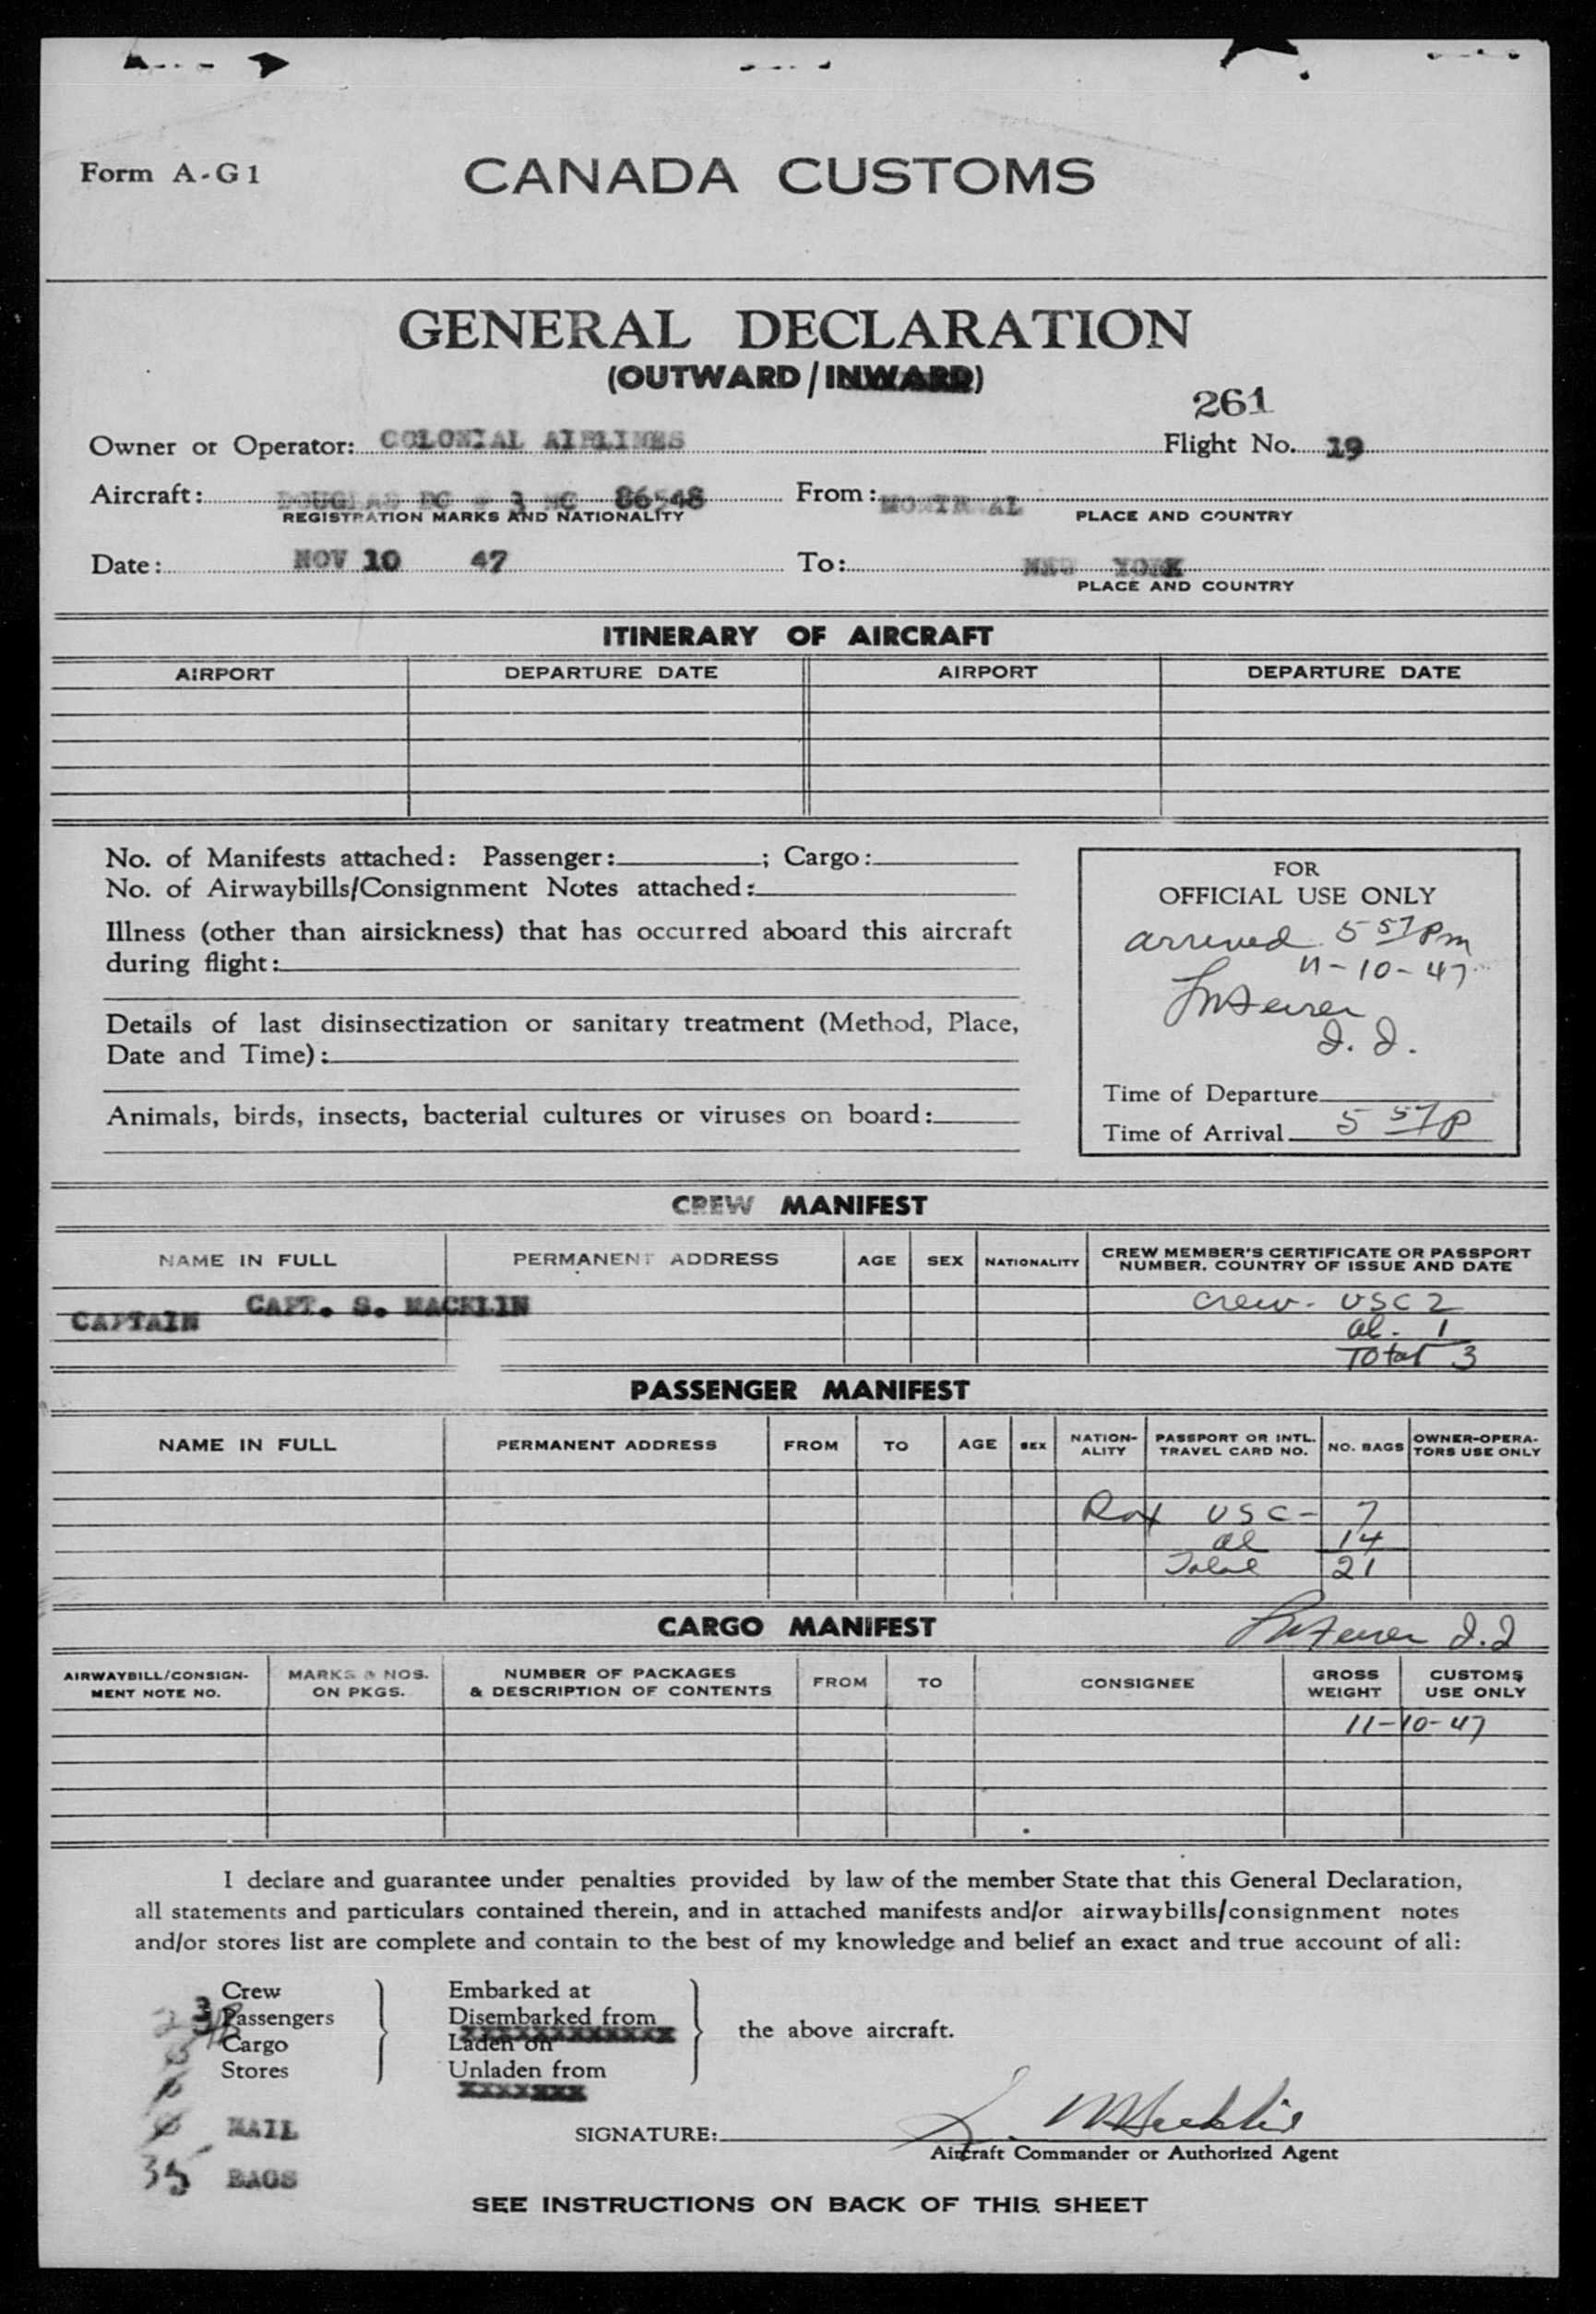 Form A-G1 CANADA CUSTOMS
GENERAL DECLARATION
(OUTWARD/INWARD)
261
Owner or Operator: COLONIAL AIRLINES Flight No. 19
Aircraft: DOUGLAS DC - 3 NC 86548 From: MONTREAL
REGISTRATION MARKS AND NATIONALITY PLACE AND COUNTRY
Date: NOV 10 47 To: NEW YORK
PLACE AND COUNTRY
ITINERARY OF AIRCRAFT
AIRPORT DEPARTURE DATE AIRPORT DEPARTURE DATE
No. of Manifests attached: Passenger: ; Cargo:
No. of Airwaybills/Consignment Notes attached:
Illness (other than airsickness) that has occurred aboard this aircraft
during flight:
Details of last disinsectization or sanitary treatment (Method, Place,
Date and Time):
Animals, birds, insects, bacterial cultures or viruses on board:
FOR
OFFICIAL USE ONLY
arrived 5 57 Pm
11-10-47
I. I.
Time of Departure
Time of Arrival 5 57 P
CREW MANIFEST
NAME IN FULL PERMANENT ADDRESS AGE SEX NATIONALITY CREW MEMBER'S CERTIFICATE OR PASSPORT
NUMBER, COUNTRY OF ISSUE AND DATE
CAPTAIN CAPT. S. MACKLIN crew - USC 2
al. 1
Total 3
PASSENGER MANIFEST
NAME IN FULL PERMANENT ADDRESS FROM TO AGE SEX NATION-
ALITY PASSPORT OR INTL.
TRAVEL CARD NO. NO. BAGS OWNER-OPERA-
TORS USE ONLY
USC - 7
al 14
Total 21
CARGO MANIFEST I.I
AIRWAYBILL/CONSIGN-
MENT NOTE NO. MARKS & NOS.
ON PKGS. NUMBER OF PACKAGES
& DESCRIPTION OF CONTENTS FROM TO CONSIGNEE GROSS
WEIGHT CUSTOMS
USE ONLY
11-10-47
I declare and guarantee under penalties provided by law of the member State that this General Declaration,
all statements and particulars contained therein, and in attached manifests and/or airwaybills/consignment notes
and/or stores list are complete and contain to the best of my knowledge and belief an exact and true account of all:
Crew Embarked at
3 Passengers Disembarked from
Cargo Laden on the above aircraft.
Stores Unladen from
MAIL
SIGNATURE: S. Macklin
Aircraft Commander or Authorized Agent
35 BAGS
SEE INSTRUCTIONS ON BACK OF THIS SHEET